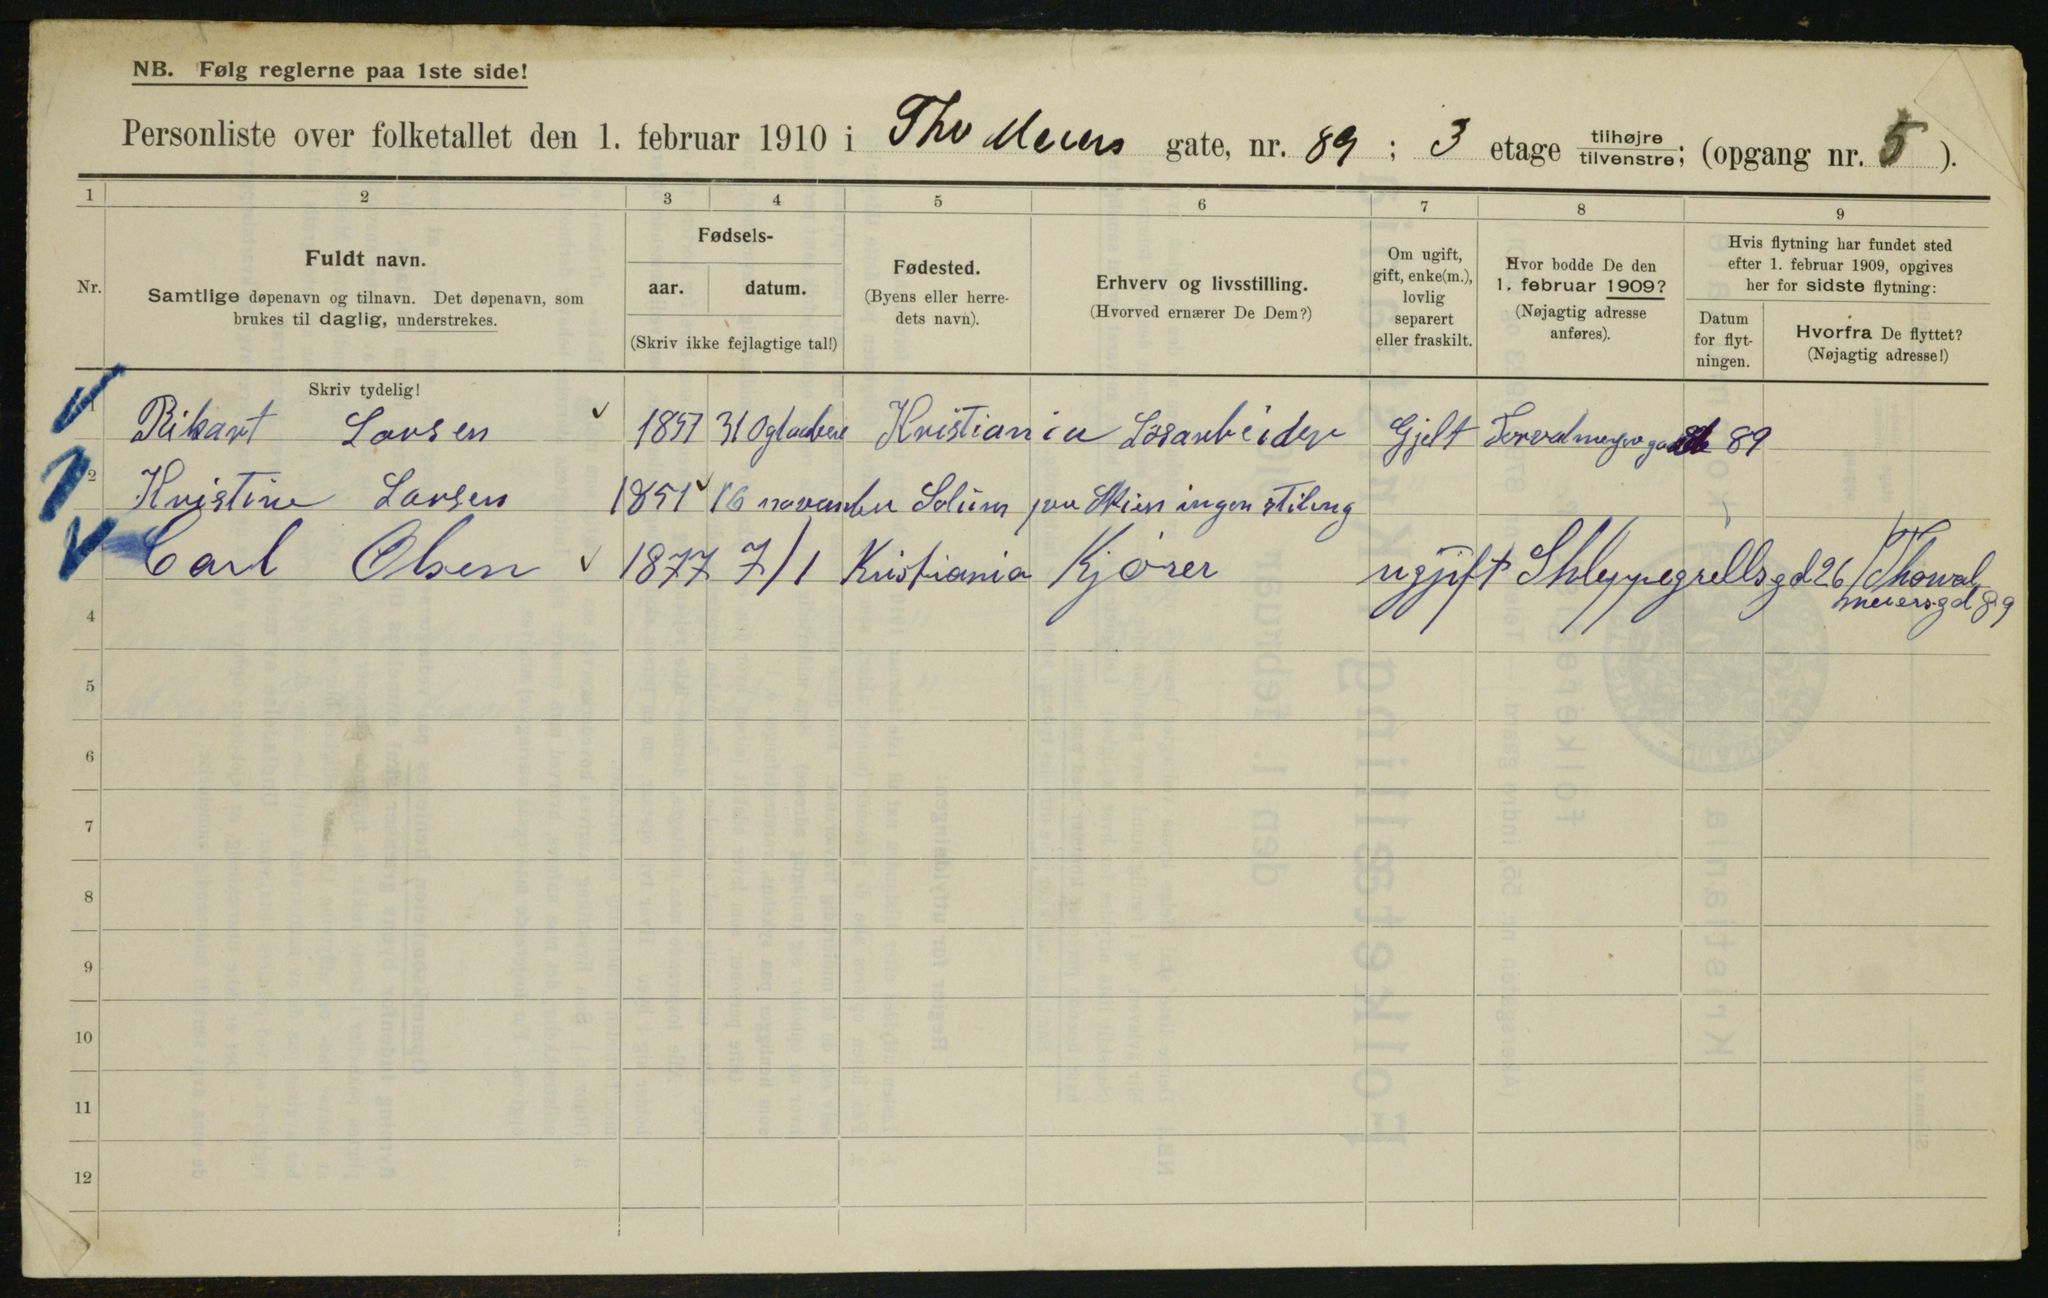 NB. Følg reglerne paa 1ste side!
Personliste over folketallet den 1. februar 1910 i Thv Meiers gate, nr. 89 ; 3 etage tilhøjre tilvenstre; (opgang nr. 5 ).
1 2 3 4 5 6 7 8 9
Nr.
Fuldt navn.
Samtlige døpenavn og tilnavn. Det døpenavn, som
brukes til daglig, understrekes.
Skriv tydelig!
Fødsels-
aar. datum.
(Skriv ikke fejlagtige tal!)
Fødested.
(Byens eller herre-
dets navn).
Erhverv og livsstilling.
(Hvorved ernærer De Dem?)
Om ugift,
gift, enke(m.),
lovlig
separert
eller fraskilt.
Hvor bodde De den
1. februar 1909?
(Nøjagtig adresse
anføres).
Hvis flytning har fundet sted
efter 1. februar 1909, opgives
her for sidste flytning:
Datum
for flyt-
ningen.
Hvorfra De flyttet?
(Nøjagtig adresse!)
1 Rikart Larsen 1851 31 Kristiania Lösarbeider Gjelt 89
2 Kristine Larsen 1851 16 novamber Solum paa Skien ingen stiling
Carl Olsen 1877 7/1 Kristiania Kjører ugift Shleppegrellsgd 26 / Thorval
meiersgd 89
4
5
6
7
8
9
10
11
12